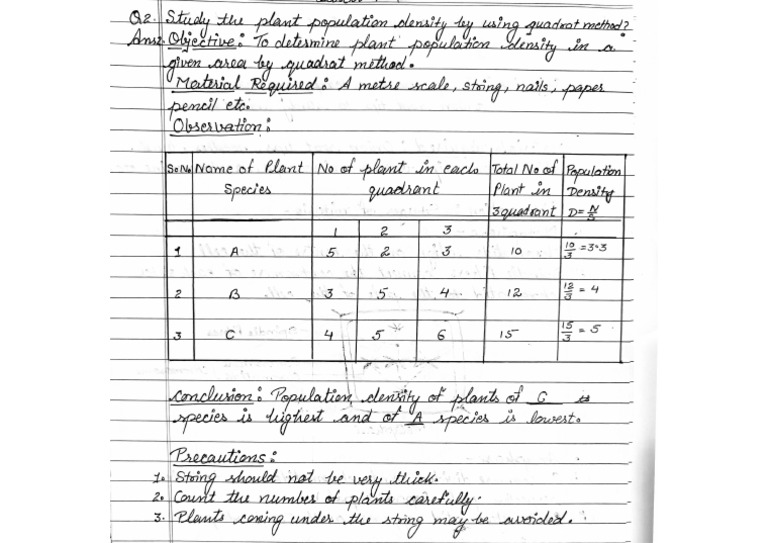 Q2. Study the plant population density by using quadrat method?
Ans2. Objective: To determine plant population density in a
given area by quadrat method.
Material Required: A metre scale, string, nails, paper
pencil etc.
Observation:
S.No Name of Plant No of plant in each Total No of Population
Species quadrant Plant in Density
3 quadrant D=N/S
1 2 3
1 A 5 2 3 10 10/3 = 3.3
2 B 3 5 4 12 12/3 = 4
3 C 4 5 6 15 15/3 = 5
Conclusion: Population density of plants of C
species is highest and of A species is lowest.
Precautions:
1. String should not be very thick.
2. Count the number of plants carefully.
3. Plants coming under the string may be avoided.